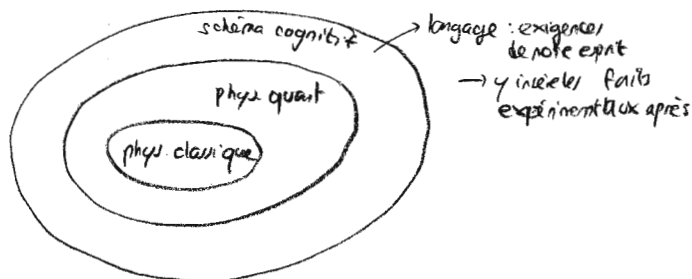 schéma cognitif
→ langage : exigences
de notre esprit
→ y insérer les faits
expérimentaux après
phys quant
phys. classique